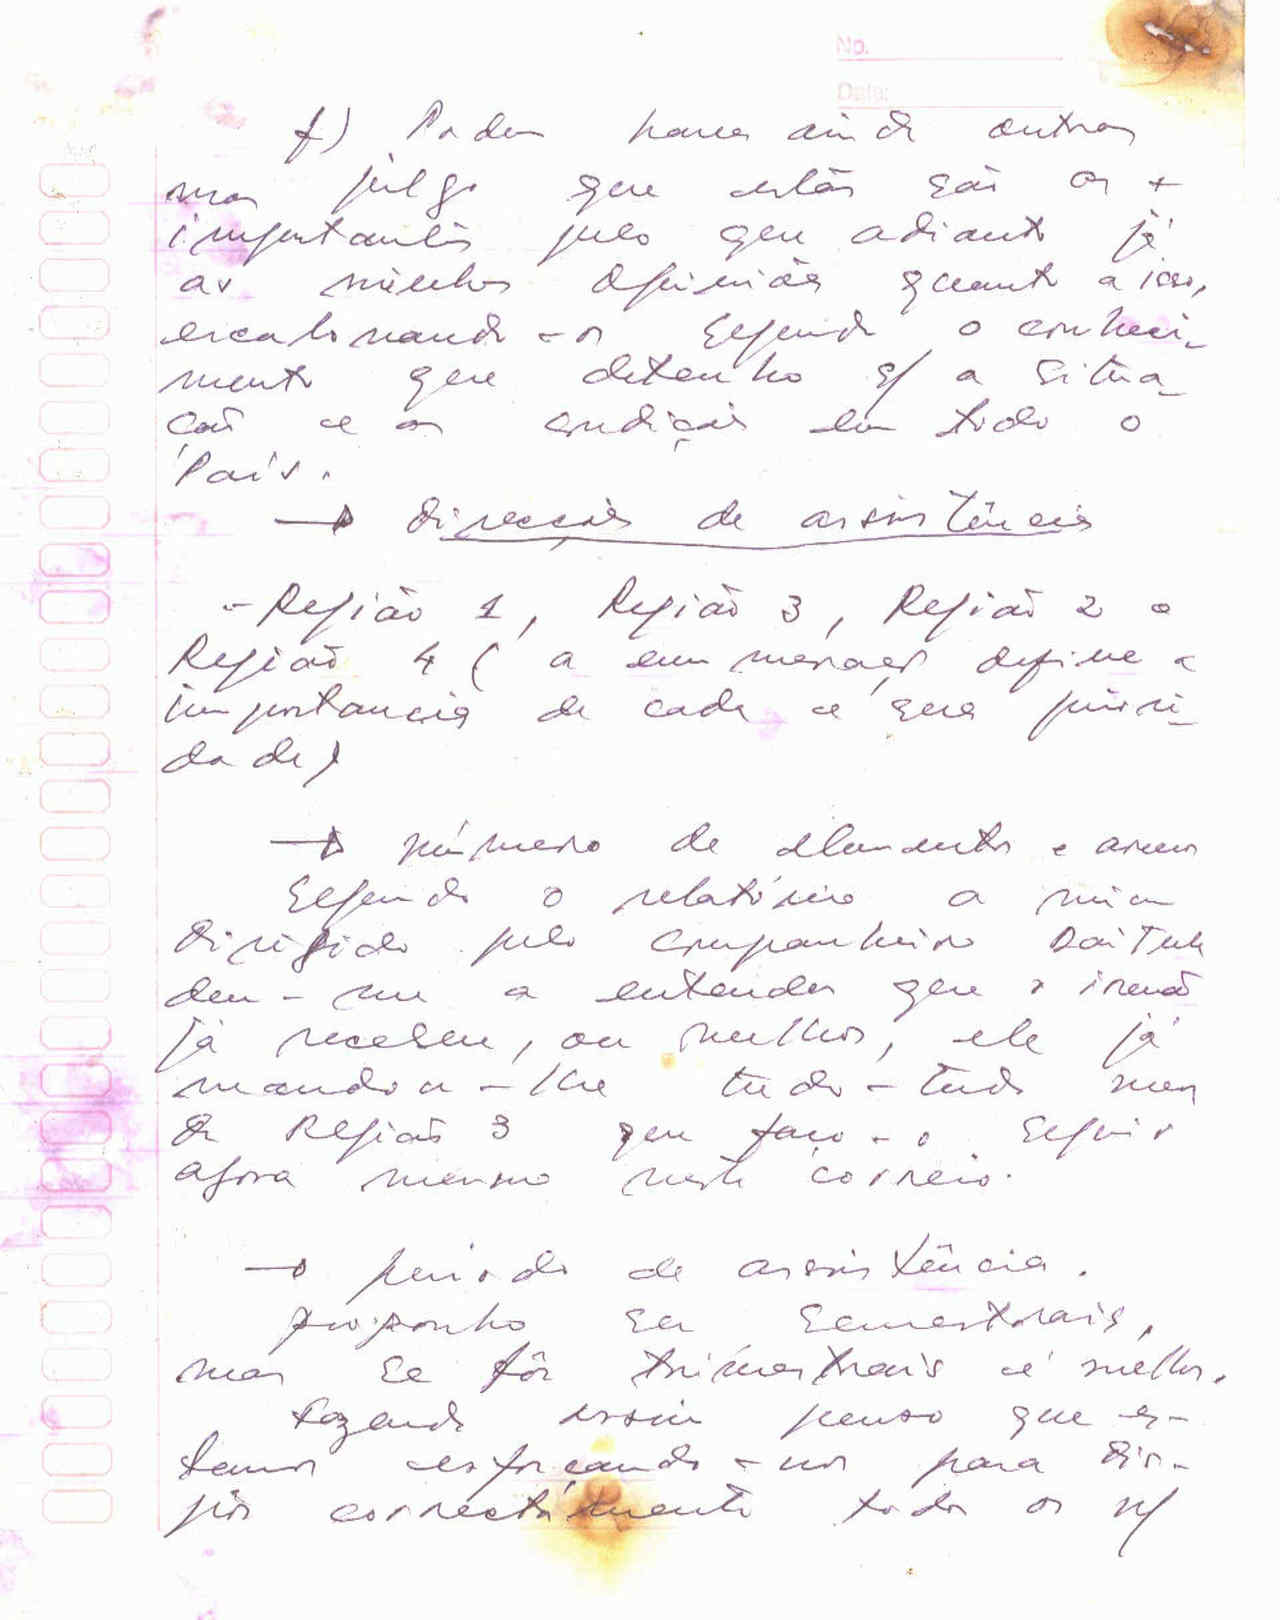 No.
Data:
f) Podem haver ainda outros
mas julgo que estás são as +
importantes pelo que adianto já
as minhas opiniões quanto a isso,
escalonando-os segundo o conheci-
mento que detenho s/ a situa-
ção e as condições em todo o
País.
→ direcções de assistência
- Região 1, Região 3, Região 2 e
Região 4 (a enumeração define a
importancia de cada e sua priori-
dade)
→ número de elementos e armas
Segundo o relatório a mim
dirigido pelo companheiro
deu-me a entender que o irmão
já recebeu, ou melhor, ele já
mandou-lhe tudo-tudo menos
da Região 3 que faço-o seguir
agora mesmo neste correio.
→ periodo de assistência.
proponho ser semestrais,
mas se fôr trimestrais é melhor.
Fazendo assim penso que es-
tamos esforçando-nos para diri-
gir correctamente todos os n/